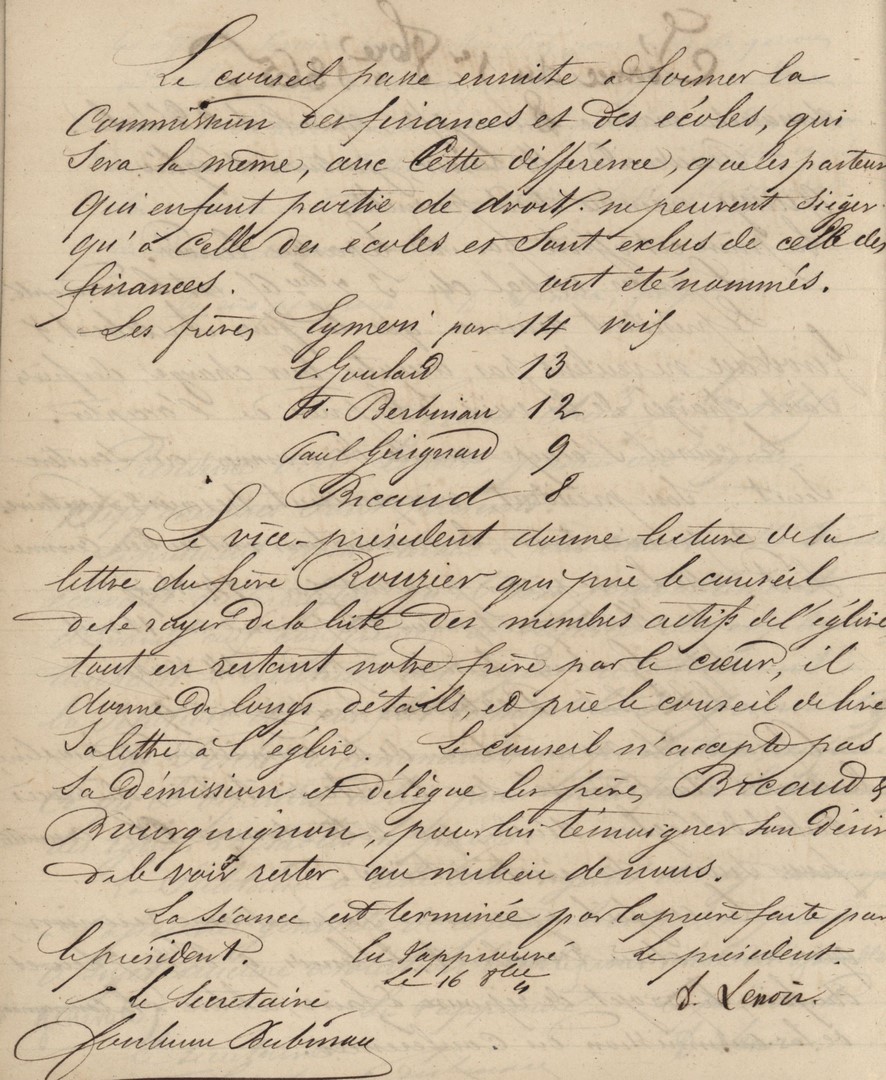 Le conseil passe ensuite à former la
Commission des finances et des écoles, qui
Sera la même, avec Cette différence, que les pasteurs
qui en font partie de droit ne peuvent siéger
qu'à Celle des écoles et Sont exclus de celle des
finances. ont été nommés.
Les frères Eymeri par 14 voix
E. Goulard 13
Berbineau 12
Paul Guignard 9
Bricaud 8
Le vice-président donne lecture de la
lettre du frère Rouzier qui prie le conseil
de le rayer de la liste des membres actifs de l'église
tout en restant notre frère par le cœur, il
donne de longs détails, et prie le conseil de lire
Sa lettre à l'église. Le conseil n'accepte pas
Sa démission et délègue les frères Bricaud &
Bourguignon, pour lui témoigner son désir
de le voir rester au milieu de nous.
La séance est terminée par la prière faite par
le président. lu & approuvé Le président.
Le 16 8bre
le Secrétaire J. Lenoir.